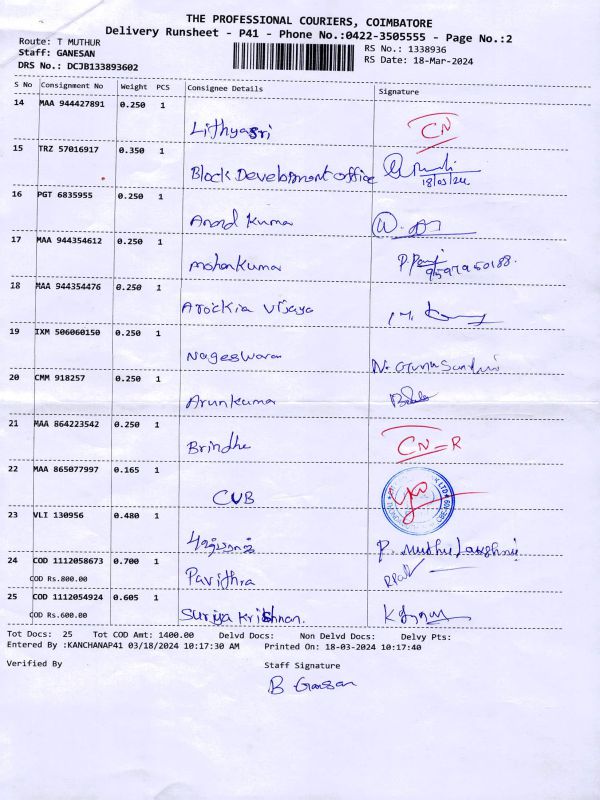 THE PROFESSIONAL COURIERS, COIMBATORE
Delivery Runsheet - P41 - Phone No.:0422-3505555 - Page No.:2
Route: T MUTHUR RS No.: 1338936
Staff: GANESAN RS Date: 18-Mar-2024
DRS No.: DCJB133893602
S No Consignment No Weight PCS Consignee Details Signature
14 MAA 944427891 0.250 1
Lithyasri CN
15 TRZ 57016917 0.350 1
Block Development office
18/03/24
16 PGT 6835955 0.250 1
Anand Kumar
17 MAA 944354612 0.250 1
Mohankumar
9597950188.
18 MAA 944354476 0.250 1
Arockia Vijaya
19 IXM 506060150 0.250 1
Nageswaran
20 CMM 918257 0.250 1
Arunkumar
21 MAA 864223542 0.250 1
Brindha CN-R
22 MAA 865077997 0.165 1
CUB
23 VLI 130956 0.480 1
24 COD 1112058673 0.700 1
COD Rs.800.00 Pavithra
25 COD 1112054924 0.605 1
COD Rs.600.00 Suriya Krishnan.
Tot Docs: 25 Tot COD Amt: 1400.00 Delvd Docs: Non Delvd Docs: Delvy Pts:
Entered By :KANCHANAP41 03/18/2024 10:17:30 AM Printed On: 18-03-2024 10:17:40
Verified By Staff Signature
B Ganesan